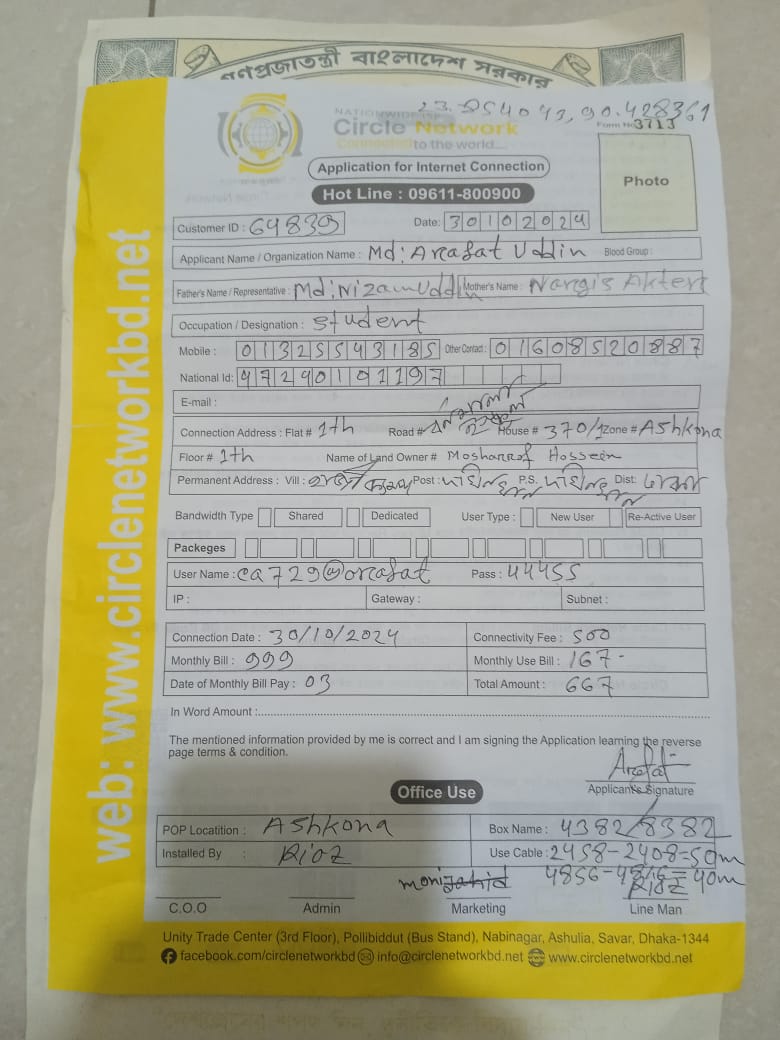 গণপ্রজাতন্ত্রী বাংলাদেশ সরকার
23.854043, 90.428361
NATIONWIDE ISP
Circle Network
Connected to the world...
Form No 3713
Application for Internet Connection
Hot Line : 09611-800900
Photo
Customer ID : 64839 Date: 30102024
Applicant Name / Organization Name : Md: Arafat Uddin Blood Group :
Father's Name / Representative : Md: Nizam Uddin Mother's Name : Nargis Akter
Occupation / Designation : Student
Mobile : 01325543185 Other Contact : 01608520887
National Id: 47240101197
E-mail :
Connection Address : Flat # 1th Road # House # 370/1 Zone # Ashkona
Floor # 1th Name of Land Owner # Mosharrof Hossein
Permanent Address : Vill : Post : P.S. Dist: ঢাকা
Bandwidth Type Shared Dedicated User Type : New User Re-Active User
Packeges
User Name : ca729@arafat Pass : 44455
IP : Gateway : Subnet :
Connection Date : 30/10/2024 Connectivity Fee : 500
Monthly Bill : 999 Monthly Use Bill : 167-
Date of Monthly Bill Pay : 03 Total Amount : 667
In Word Amount :
The mentioned information provided by me is correct and I am signing the Application learning the reverse
page terms & condition.
Arafat
Applicant's Signature
Office Use
POP Locatition : Ashkona Box Name : 4382/8382
Installed By : Rioz Use Cable : 2458-2408=50m
4856-4816=40m
Rioz
C.O.O Admin Marketing Line Man
Unity Trade Center (3rd Floor), Pollibiddut (Bus Stand), Nabinagar, Ashulia, Savar, Dhaka-1344
facebook.com/circlenetworkbd info@circlenetworkbd.net www.circlenetworkbd.net
web: www.circlenetworkbd.net